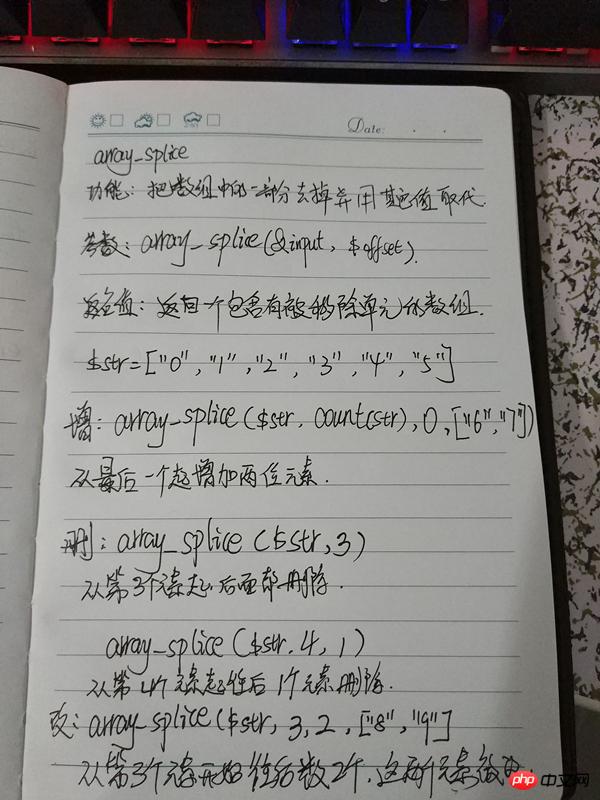 Date: . .
array_splice
功能: 把数组中的一部分去掉并用其它值取代.
参数: array_splice(&input, $offset).
返回值: 返回一个包含有被移除单元的数组.
$str=["0","1","2","3","4","5"]
增: array_splice($str, count(str), 0, ["6","7"])
从最后一个起增加两位元素.
删: array_splice($str,3)
从第3个元素起后面都删除.
array_splice($str,4,1)
从第4个元素起往后1个元素删除.
改: array_splice($str,3,2,["8","9"]
从第3个元素开始往后数2个,这两个元素
php 中文网